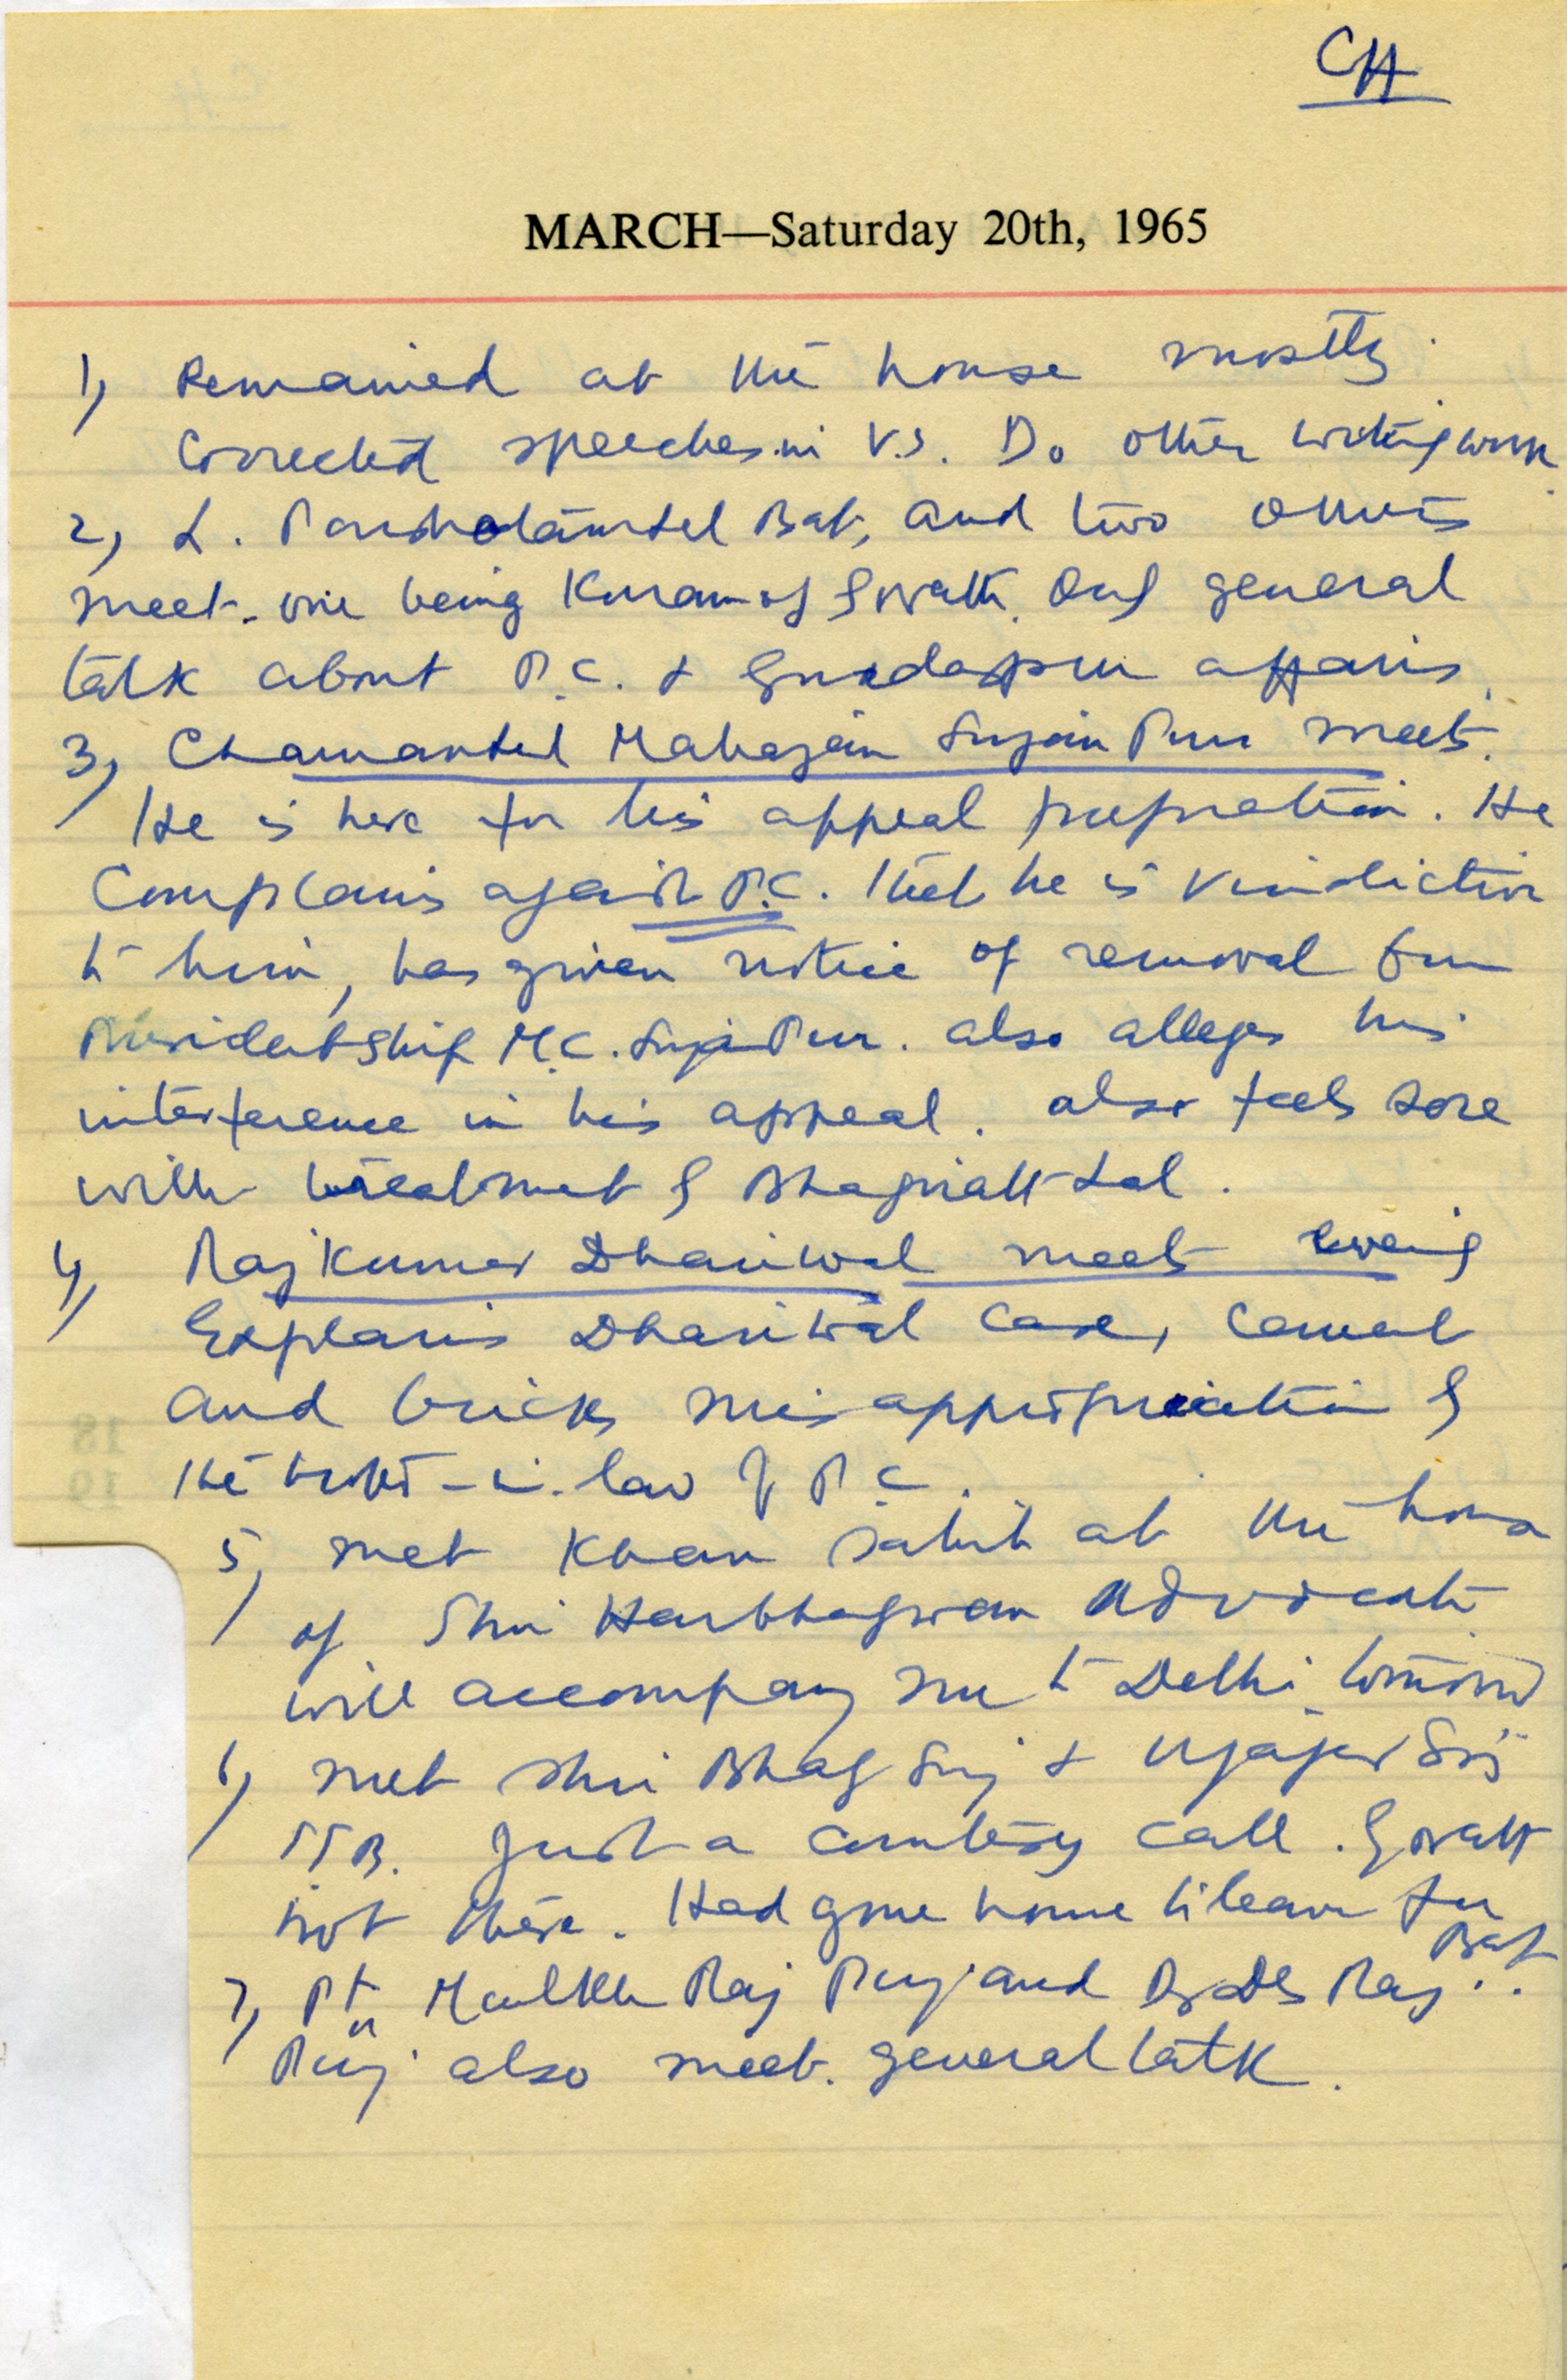 CH
MARCH—Saturday 20th, 1965
1) Remained at the house mostly.
Corrected speeches in V.S. Do other writing work
2) L. Batala, and two others
meet. one being of general
talk about P.C. & Gurdaspur affairs.
3) Chamanlal Mahajan Sujanpur meets.
He is here for his appeal preparation. He
Complains against P.C. that he is vindictive
to him, has given notice of removal from
Presidentship M.C. Sujanpur. also alleges his
interference in his appeal. also feels sore
with treatment of Bhagwatt Lal.
4) Raj Kumar Dhariwal meets evening
Explains Dhariwal case, cement
and bricks misappropriation of
the brother-in-law of P.C.
5) met Khan Sahib at the house
of Shri Harbhagwan Advocate
will accompany me to Delhi tomorrow
6) met Shri Bhag Singh & Ujagar Singh
Just a courtesy call.
not there. Had gone home to leave for
7) Pt. Mulkh Raj Puri and Raj
Puri also meet. general talk.